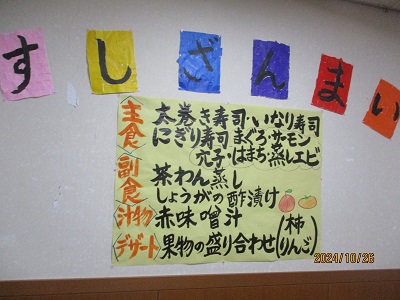 すしざんまい
主食 太巻き寿司・いなり寿司
にぎり寿司 まぐろ・サーモン
穴子・はまち・蒸しエビ
副食 茶わん蒸し
しょうがの酢漬け
汁物 赤味噌汁
デザート 果物の盛り合わせ(柿 りんご)
2024/10/26